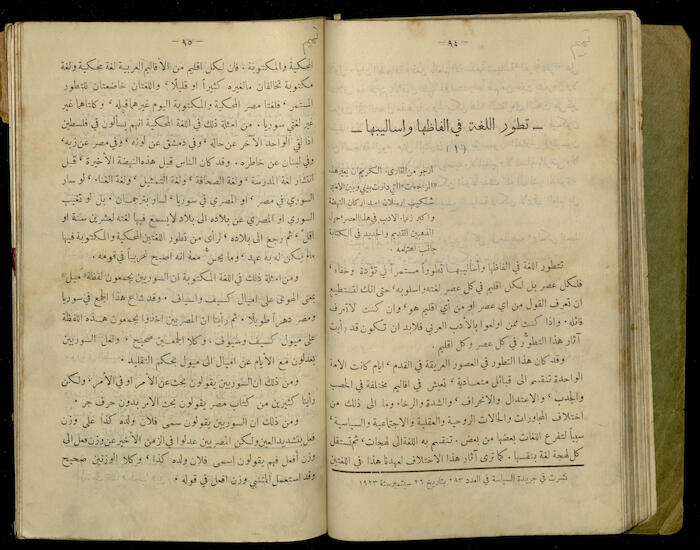 — ٩٤ —
— تطور اللغة في الفاظها واساليبها —
(١)
ارجو من القارىء الكريم ان يعير هذه
المراجعات التي دارت بيني وبين الامير
شكيب ارسلان احد اركان النهضة
واكبر زعماء الادب في هذا العصر حول
المذهبين القديم والجديد في الكتابة
جانب اهتمامه .
تتطور اللغة في الفاظها وأساليبها تطوراً مستمراً في تؤدة وخفاء ،
فلكل عصر بل لكل اقليم في كل عصر لغته واسلوبه ، حتى انك لتستطيع
ان تعرف القول من اي عصر او من أي اقليم هو ، وان كنت لا تعرف
قائله . واذا كنت ممن اولعوا بالأدب العربي فلابد ان تكون قد رأيت
آثار هذا التطور في كل عصر وكل اقليم .
وقد كان هذا التطور في العصور العريقة في القدم ، ايام كانت الامة
الواحدة تنقسم الى قبائل متعادية ، تعيش في اقاليم مختلفة في الخصب
والجدب ، والاعتدال والانحراف ، والشدة والرخاء وما الى ذلك من
اختلاف المجاورات والحالات الروحية والعقلية والاجتماعية والسياسية ،
سبباً لتفرع اللغات بعضها من بعض . تنقسم به اللغة الى لهجات ، ثم تستقل
كل لهجة لغة بنفسها . كما ترى آثار هذا الاختلاف لعهدنا هذا في اللغتين
نشرت في جريدة السياسة في العدد ٢٨٣ بتاريخ ٢٦ سبتمبر سنة ١٩٢٣
— ٩٥ —
المحكية والمكتوبة ، فان لكل اقليم من الاقاليم العربية لغة محكية ولغة
مكتوبة تخالفان ما لغيره كثيراً او قليلاً ، واللغتان خاضعتان للتطور
المستمر ، فلغتا مصر المحكية والمكتوبة اليوم غيرهما قبله ، وكلتاهما غير
لغتي سوريا . من امثلة ذلك في اللغة المحكية انهم يسألون في فلسطين
اذا لقي الواحد الآخر عن حاله ، وفي دمشق عن لونه ، وفي مصر عن زيه ،
وفي لبنان عن خاطره . وقد كان الناس قبل هذه النهضة الاخيرة ، قبل
انتشار لغة المدرسة ، ولغة الصحافة ، ولغة التمثيل ، ولغة الغناء ، لو سار
السوري في مصر ، او المصري في سوريا ، لسار بترجمان . بل لو تغيب
السوري او المصري عن بلاده الى بلاد لا يسمع فيها لغته لعشرين سنة او
اقل ، ثم رجع الى بلاده ، لرأى من تطور اللغتين المحكية والمكتوبة فيها
ما لم يكن له به عهد ، وما يحسّ معه انه اصبح غريباً في قومه .
ومن امثلة ذلك في اللغة المكتوبة ان السوريين يجمعون لفظة « ميل »
بمعنى الهوى على اميال كسيف واسياف . وقد شاع هذا الجمع في سوريا
ومصر دهراً طويلاً . ثم رأيتا ان المصريين اخذوا يجمعون هذه اللفظة
على ميول كسيف وضيوف ، وكلا الجمعين صحيح . ولعل السوريين
يعدلون مع الايام عن اميال الى ميول بحكم التقليد .
ومن ذلك ان السوريين يقولون بحث عن الامر او في الامر . ولكن
رأيتا كثيرين من كتاب مصر يقولون بحث الامر بدون حرف جر .
ومن ذلك ان السوريين يقولون سمى فلان ولده كذا على وزن
فعل بتشديد العين ولكن المصريين عدلوا في الزمن الاخير عن وزن فعل الى
وزن أفعل فهم يقولون اسمى فلان ولده كذا ، وكلا الوزنين صحيح
وقد استعمل المتنبي وزن افعل في قوله .